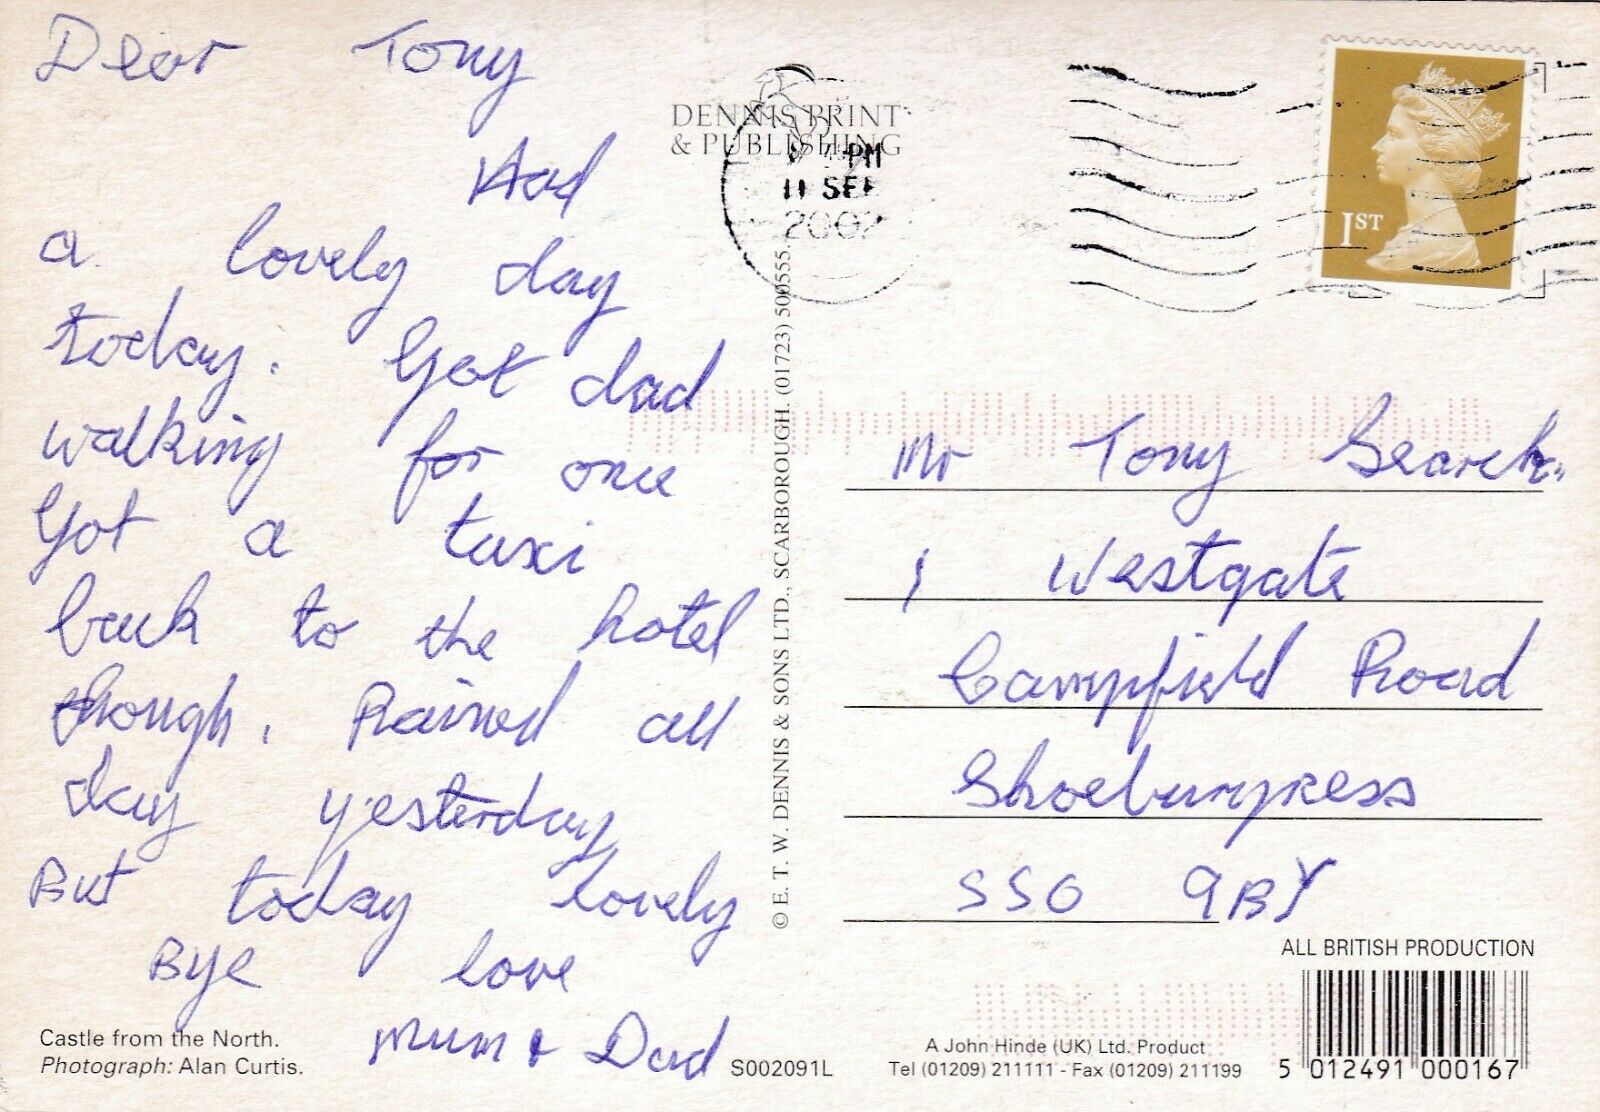 Dear Tony
Had
a lovely day
today. Got dad
walking for once
Got a taxi
back to the hotel
though. Rained all
day yesterday
But today lovely
Bye love
Mum & Dad
Castle from the North.
Photograph: Alan Curtis.
DENNIS PRINT
& PUBLISHING
PM
11 SEP
2002
© E. T. W. DENNIS & SONS LTD., SCARBOROUGH. (01723) 500555.
S002091L
1ST
Mr Tony Search
1 Westgate
Campfield Road
Shoeburyness
SS0 9BY
ALL BRITISH PRODUCTION
A John Hinde (UK) Ltd. Product
Tel (01209) 211111 - Fax (01209) 211199
5 012491 000167